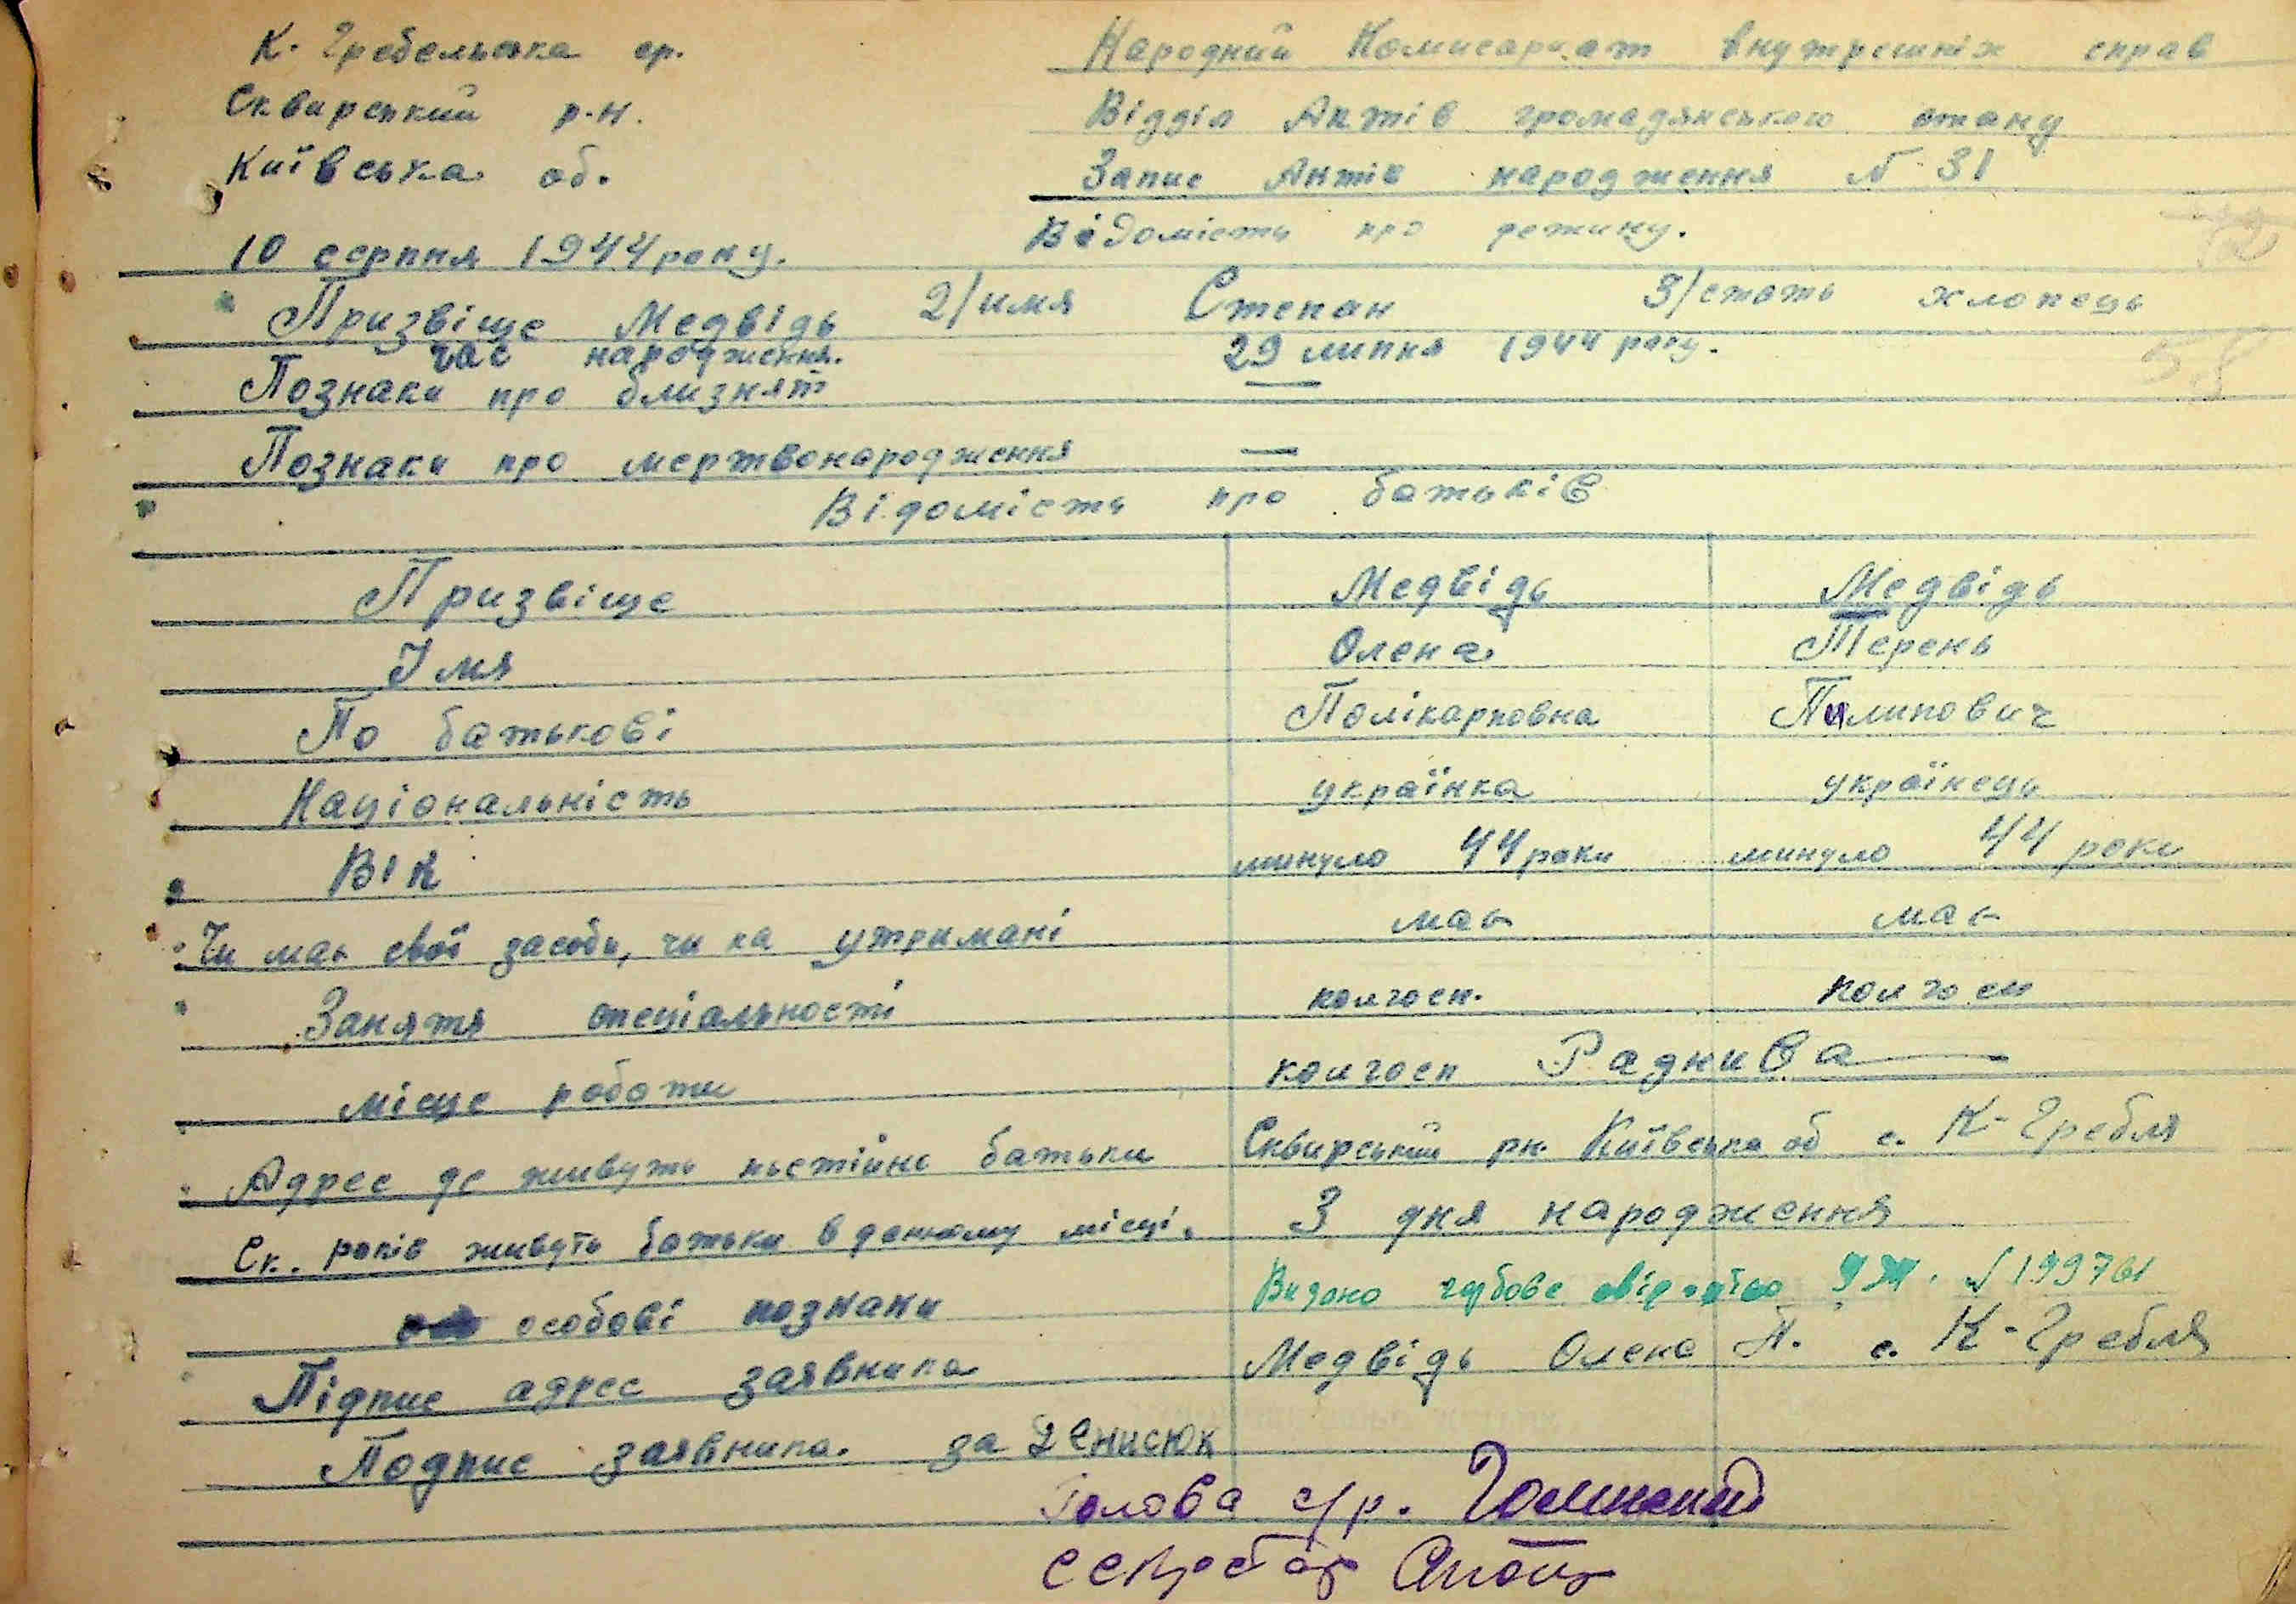 К. Гребельська ср.
Сквирський р-н.
Київська об.
10 серпня 1944 року.
Народний Комисариат внутрешніх справ
Відділ Актів громадянського стану
Запис Актів народження № 31
Відомість про
Призвіще Медвідь 2/имя Степан 3/стать хлопець
час народження. 29 липня 1944 року.
Познаки про близнят —
Познаки про мертвонародження —
Відомість про батьків
Призвіще Медвідь Медвідь
Імя Олена Терень
По батькові Полікарповна Пилипович
Національність українка українець
Вік минуло 44 роки минуло 44 роки
Чи має свої засоби, чи на утримані має має
Заняття спеціальності колгосп. колгосп
місце роботи колгосп Раднива —
Адрес де живуть постійно батьки Сквирський рн. Київська об с. К-Гребля
Ск. років живуть батьки в данному місці. З дня народження
особові познаки Видано свідоцтво № 199761
Підпис адрес заявника Медвідь Олена П. с. К-Гребля
Подпис заявника. за Денисюк
Голова с/р.
секретар